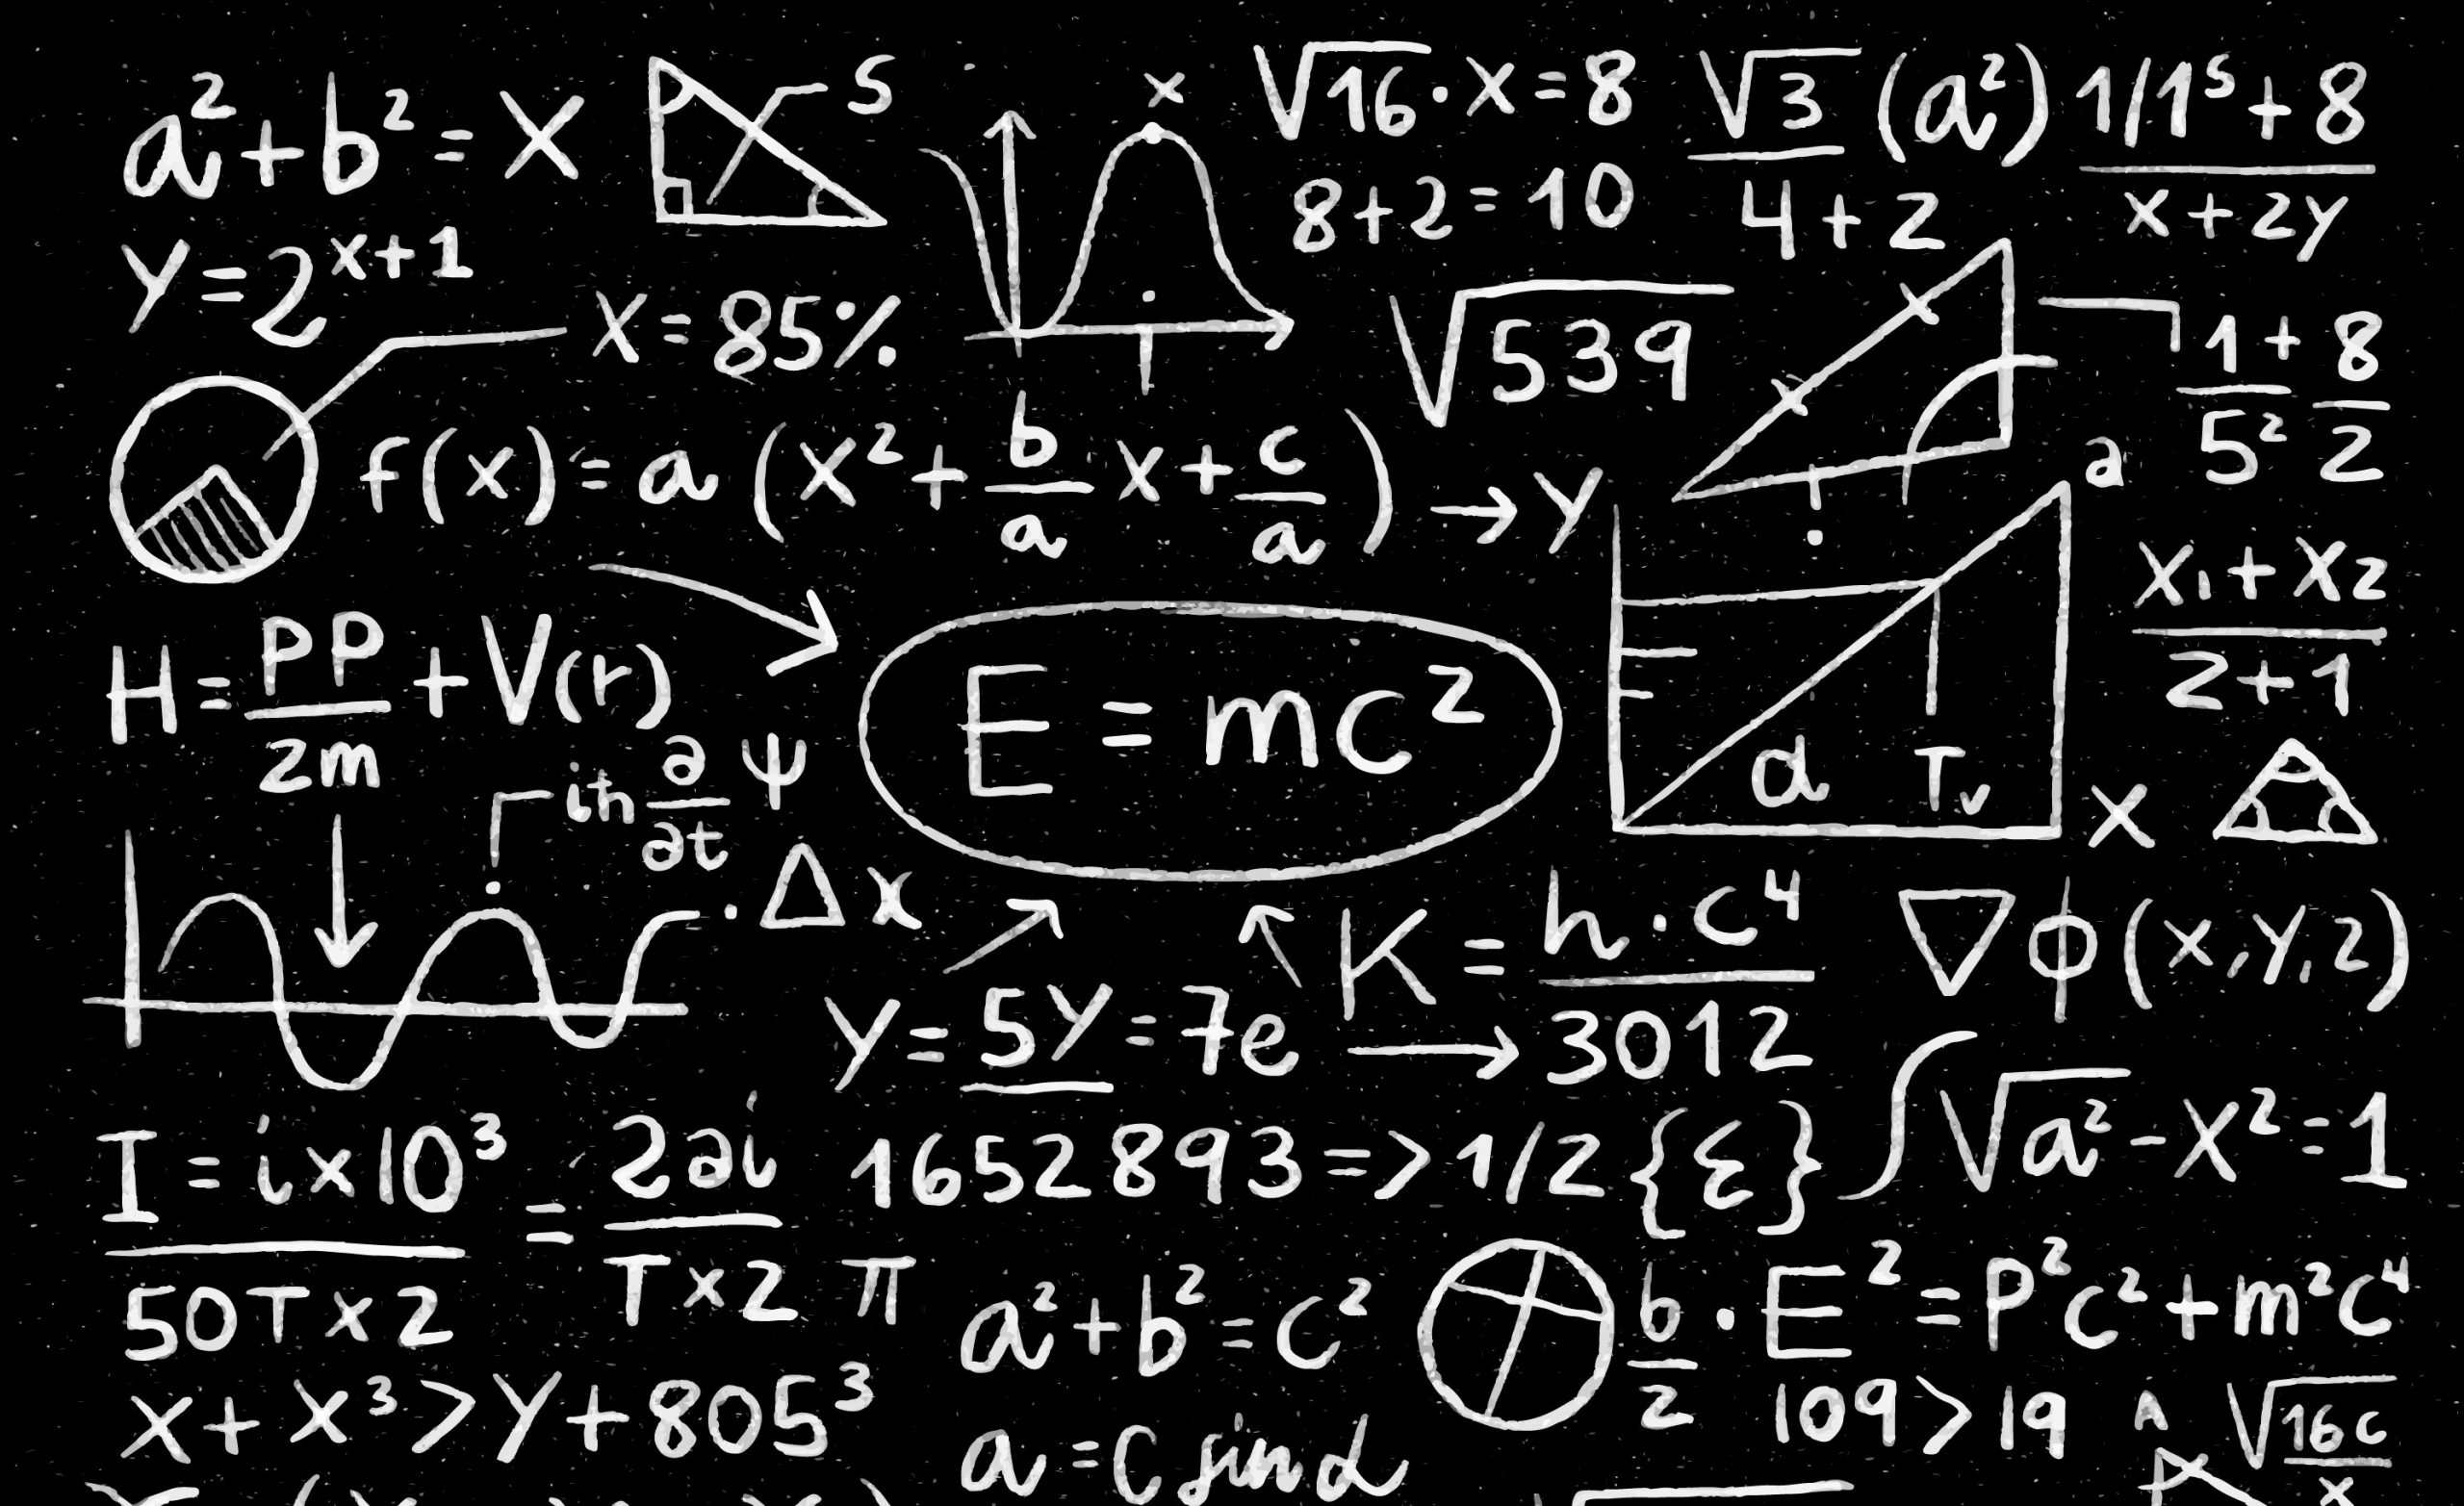 a² + b² = x
S
x
√16 · x = 8
8 + 2 = 10
√3 / 4 + 2 (a²)
1/1⁵ + 8 / x + 2y
y = 2ˣ⁺¹
x = 85%
√539
1 + 8
5² 2
f(x) = a (x² + b/a x + c/a) → y
a
x₁ + x₂ / 2 + 1
H = PP / 2m + V(r)
E = mc²
iħ ∂/∂t ψ
d Tv
x
· Δx
K = h · c⁴ / 3012
∇ϕ(x,y,z)
y = 5y = 7e →
I = i x 10³ / 50T x 2 = 2ai / T x 2 π
1652893 => 1/2 {ε}
∫√a² - x² = 1
a² + b² = c²
b/2 · E² = P²c² + m²c⁴
x + x³ > y + 805³
109 > 19
√16c / x
a = c sin α